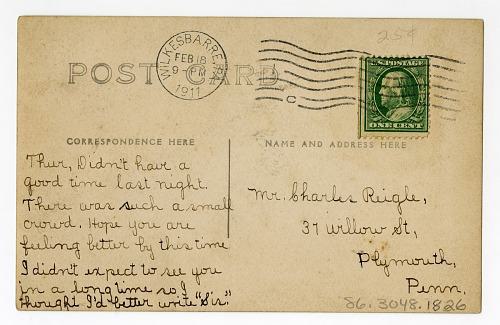 25¢
WILKESBARRE, PA.
FEB 18
9 - PM
1911
C
U.S. POSTAGE
ONE CENT
POST CARD
CORRESPONDENCE HERE
NAME AND ADDRESS HERE
Thur, Didn't have a
good time last night.
There was such a small
crowd. Hope you are
feeling better by this time
I didn't expect to see you
in a long time so I
thought I'd better write "Sis."
Mr. Charles Reigle,
37 Willow St,
Plymouth,
Penn.
86.3048.1826